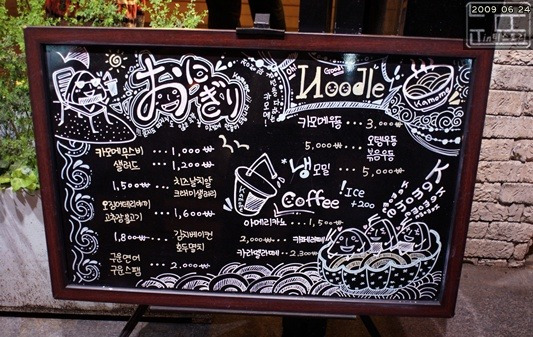 2009 06 24
おにぎり
카모메무스비 ... 1,000₩
샐러드 ... 1,200₩
1,500₩ ... 치즈날치알
크래미샐러리
오징어데리야끼
고추장불고기 ... 1,600₩
1,800₩ ... 김치베이컨
호두멸치
구운연어
구운스팸 ... 2.000₩
Noodle
Kamome
카모메우동 ... 3,000₩
5,000₩ ... 오뎅우동
볶음우동
냉모밀 ... 5,000₩
Coffee
Ice
+200
아메리카노 ... 1,500₩
2,000₩ ... 카페라떼
카라멜라떼 ... 2.300₩